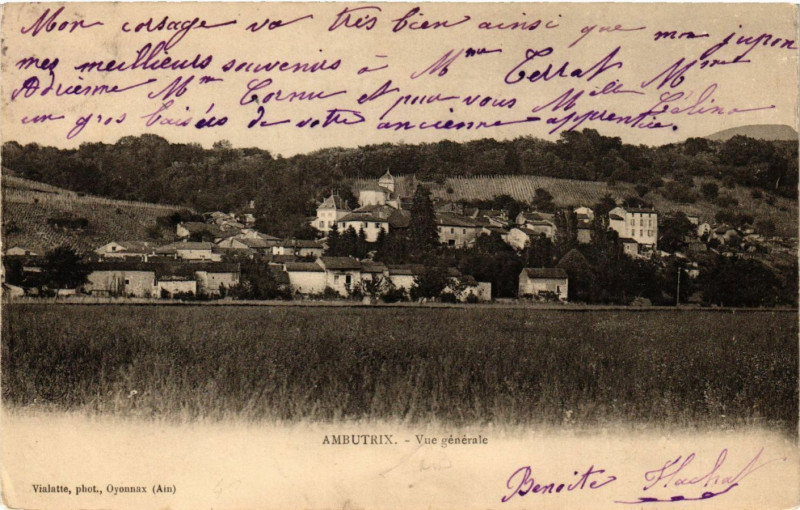 Mon corsage va très bien ainsi que mon jupon
mes meilleurs souvenirs à Mme Terrat Mme
Adrienne Mme Cornu et puis vous Mlle Célina
un gros baisers de votre ancienne apprentie.
AMBUTRIX. - Vue générale
Vialatte, phot., Oyonnax (Ain)
Benoite